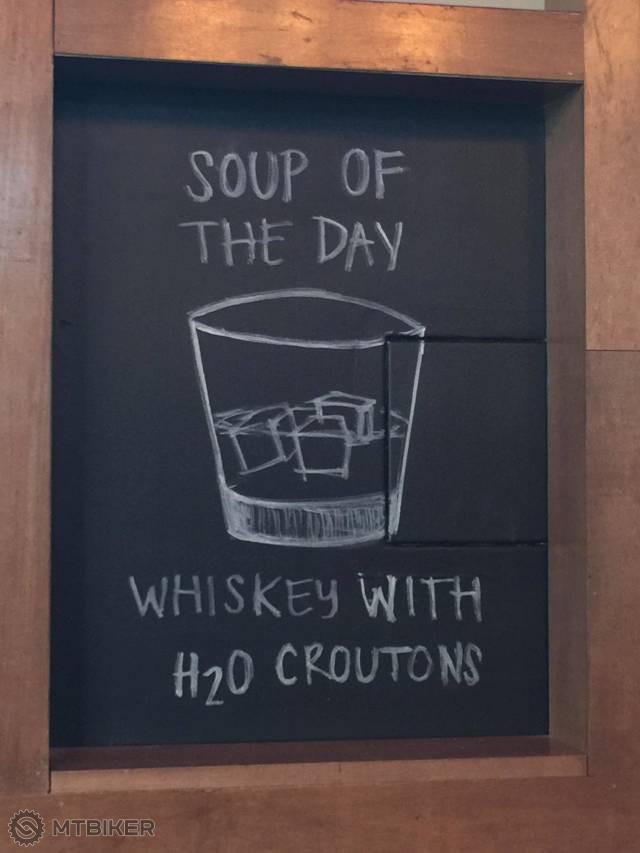 SOUP OF
THE DAY
WHISKEY WITH
H2O CROUTONS
MTBIKER